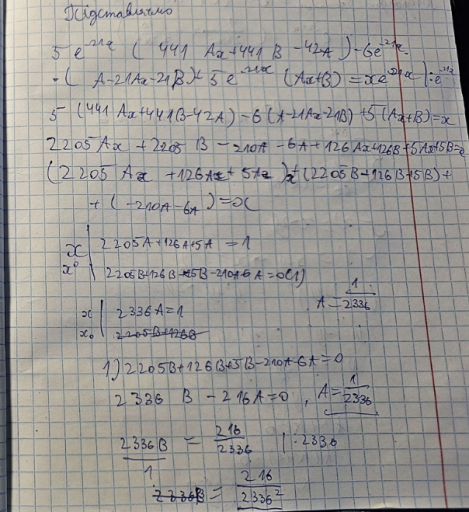 Підставляємо
5e^{-21x} (441Ax+441B-42A)-6e^{-21x}
·(A-21Ax-21B)+5e^{-21x}(Ax+B)=xe^{-21x} |:e^{-21x}
5(441Ax+441B-42A)-6(A-21Ax-21B)+5(Ax+B)=x
2205Ax+2205B-210A-6A+126Ax+126B+5Ax+5B=x
(2205Ax+126Ax+5Ax)+(2205B+126B+5B)+
+(-210A-6A)=x
x | 2205A+126A+5A=1
x⁰ | 2205B+126B+5B-210A-6A=0(1)
A=1/2336
x | 2336A=1
x₀ | 2205B+126B
1)2205B+126B+5B-210A-6A=0
2336B-216A=0, A=1/2336
2336B/1 = 216/2336 |:2336
2336B = 216/2336²